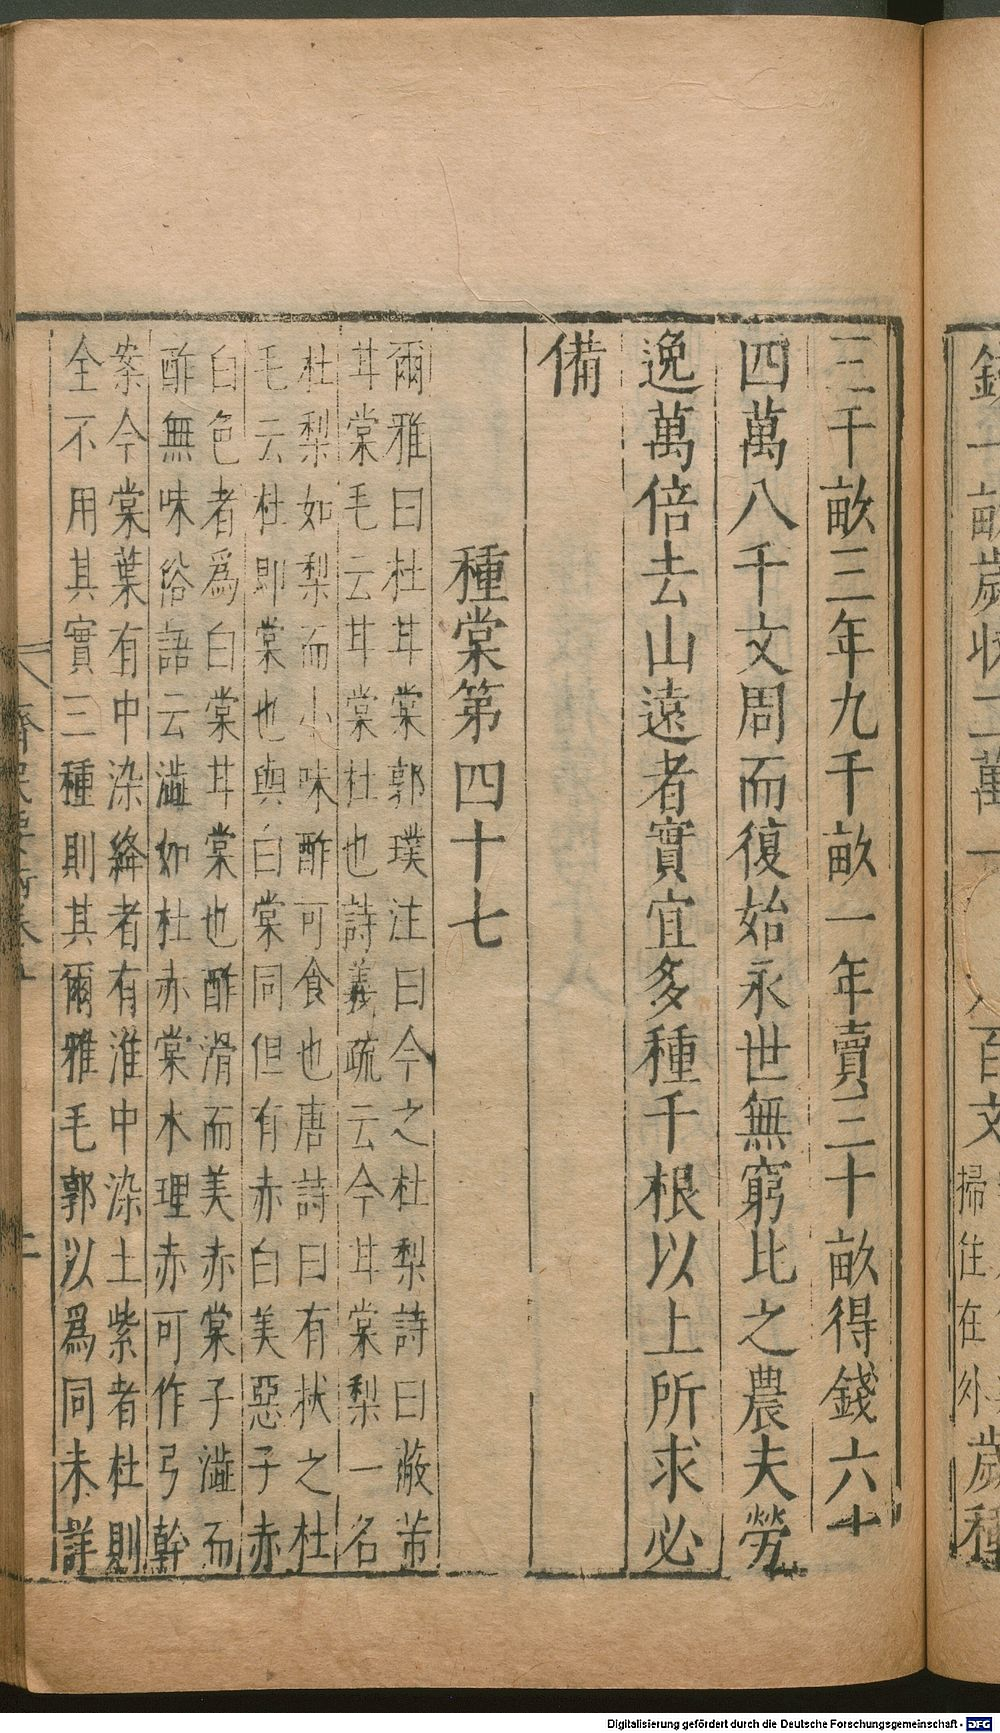 三千畝三年九千畝一年賣三十畝得錢六十
四萬八千文周而復始永世無窮比之農夫勞
逸萬倍去山遠者實宜多種千根以上所求必
備
種棠第四十七
爾雅曰杜甘棠郭璞注曰今之杜梨詩曰蔽芾
甘棠毛云甘棠杜也詩義疏云今甘棠梨一名
杜梨如梨而小味酢可食也唐詩曰有杕之杜
毛云杜即棠也與白棠同但有赤白美惡子赤
白色者爲白棠甘棠也酢滑而美赤棠子澁而
酢無味俗語云澁如杜赤棠木理赤可作弓幹
案今棠葉有中染絳者有淮中染土紫者杜則
全不用其實三種則其爾雅毛郭以爲同未詳
齊民要術卷五
Digitalisierung gefördert durch die Deutsche Forschungsgemeinschaft - DFG